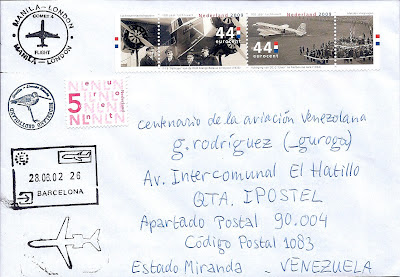 MANILA - LONDON
COMET 4
FLIGHT
MANILA - LONDON
Nederland 2009
Nederland 2009
44
eurocent
44
eurocent
5
28.06.02 26
BARCELONA
centenario de la aviación Venezolana
g. rodríguez (_guroga)
Av. Intercomunal El Hatillo
QTA. IPOSTEL
Apartado Postal 90.004
Código Postal 1083
Estado Miranda - VENEZUELA